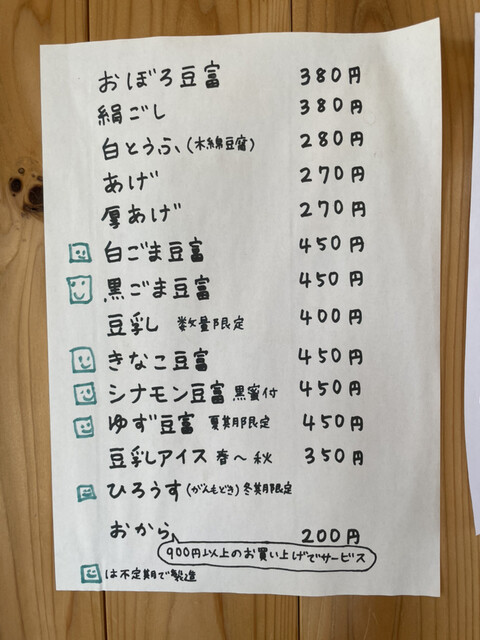 おぼろ豆富 380円
絹ごし 380円
白とうふ、(木綿豆腐) 280円
あげ 270円
厚あげ 270円
白ごま豆富 450円
黒ごま豆富 450円
豆乳し 数量限定 400円
きなこ豆富 450円
シナモン豆富 黒蜜付 450円
ゆず豆富 夏期限定 450円
豆乳しアイス 春〜秋 350円
ひろうす(がんもどき)冬期限定
おから 200円
900円以上のお買い上げでサービス
は不定期で製造